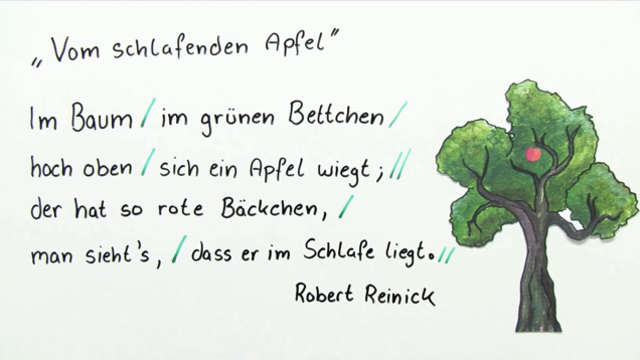 „Vom schlafenden Apfel“
Im Baum / im grünen Bettchen /
hoch oben / sich ein Apfel wiegt; //
der hat so rote Bäckchen, /
man sieht's, / dass er im Schlafe liegt. //
Robert Reinick